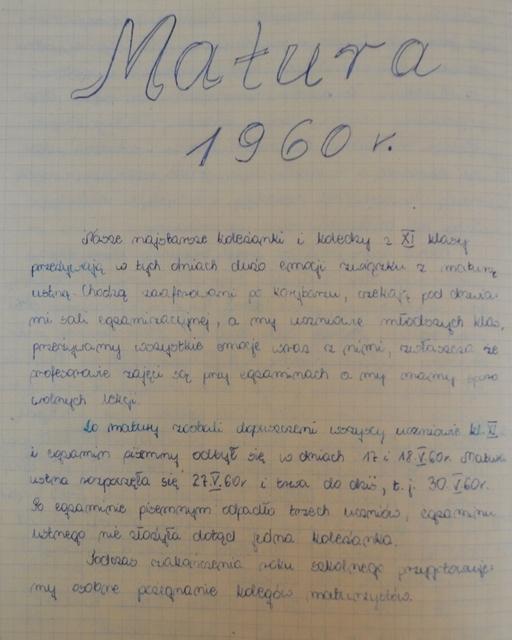 Matura
1960 r.
Nasze najstarsze koleżanki i koledzy z XI klasy
przeżywają w tych dniach dużo emocji związku z maturą
ustną. Chodzą zaaferowani po korytarzu, czekają pod drzwia-
mi sali egzaminacyjnej, a my uczniowie młodszych klas,
przeżywamy wszystkie emocje wraz z nimi, zwłaszcza że
profesorowie zajęci są przy egzaminach a my mamy sporo
wolnych lekcji.
Do matury zostali dopuszczeni wszyscy uczniowie kl. XI
i egzamin pisemny odbył się w dniach 17 i 18.V.60r. Matura
ustna rozpoczęła się 27.V.60r i trwa do dziś, t.j. 30.V.60r.
Po egzaminie pisemnym odpadło trzech uczniów, egzaminu
ustnego nie złożyła dotąd jedna koleżanka.
Podczas zakończenia roku szkolnego przygotowuje-
my osobne pożegnanie kolegów maturzystów.